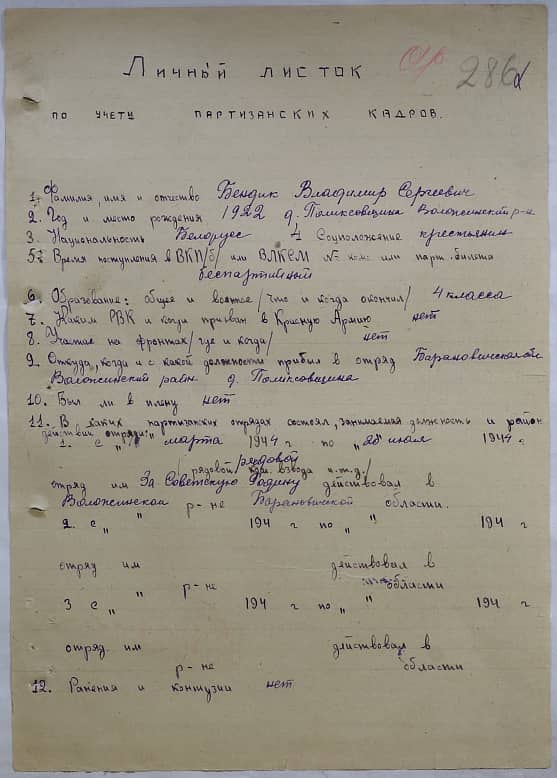 286
Личный листок
по учету партизанских кадров.
1. Фамилия, имя и отчество Бендик Владимир Сергеевич
2. Год и место рождения 1922 д. Поликсовщина Воложинский р-н
3. Национальность Белорус 4 Соцположение крестьянин
5. Время поступления в ВКП/б/ или ВЛКСМ № ком. или парт. билета
беспартийный
6. Образование: общее и военное /что и когда окончил/ 4 класса
7. Каким РВК и когда призван в Красную Армию нет
8. Участие на фронтах /где и когда/ нет
9. Откуда, когда и с какой должности прибыл в отряд Барановичской
Воложинский район д. Поликсовщина
10. Был ли в плену нет
11. В каких партизанских отрядах состоял, занимаемая должность и район
действий отряда
1. с " марта 1944 г по " 28 июля 1944 г.
рядовой
/рядовой, ком. взвода и.т.д./
отряд им За Советскую Родину действовал в
Воложинском р-не Барановичской области.
2. с " " 194 г по " " 194 г
отряд им действовал в
р-не области
3 с " " 194 г по " " 194 г
отряд им действовал в
р-не области
12. Ранения и контузии нет